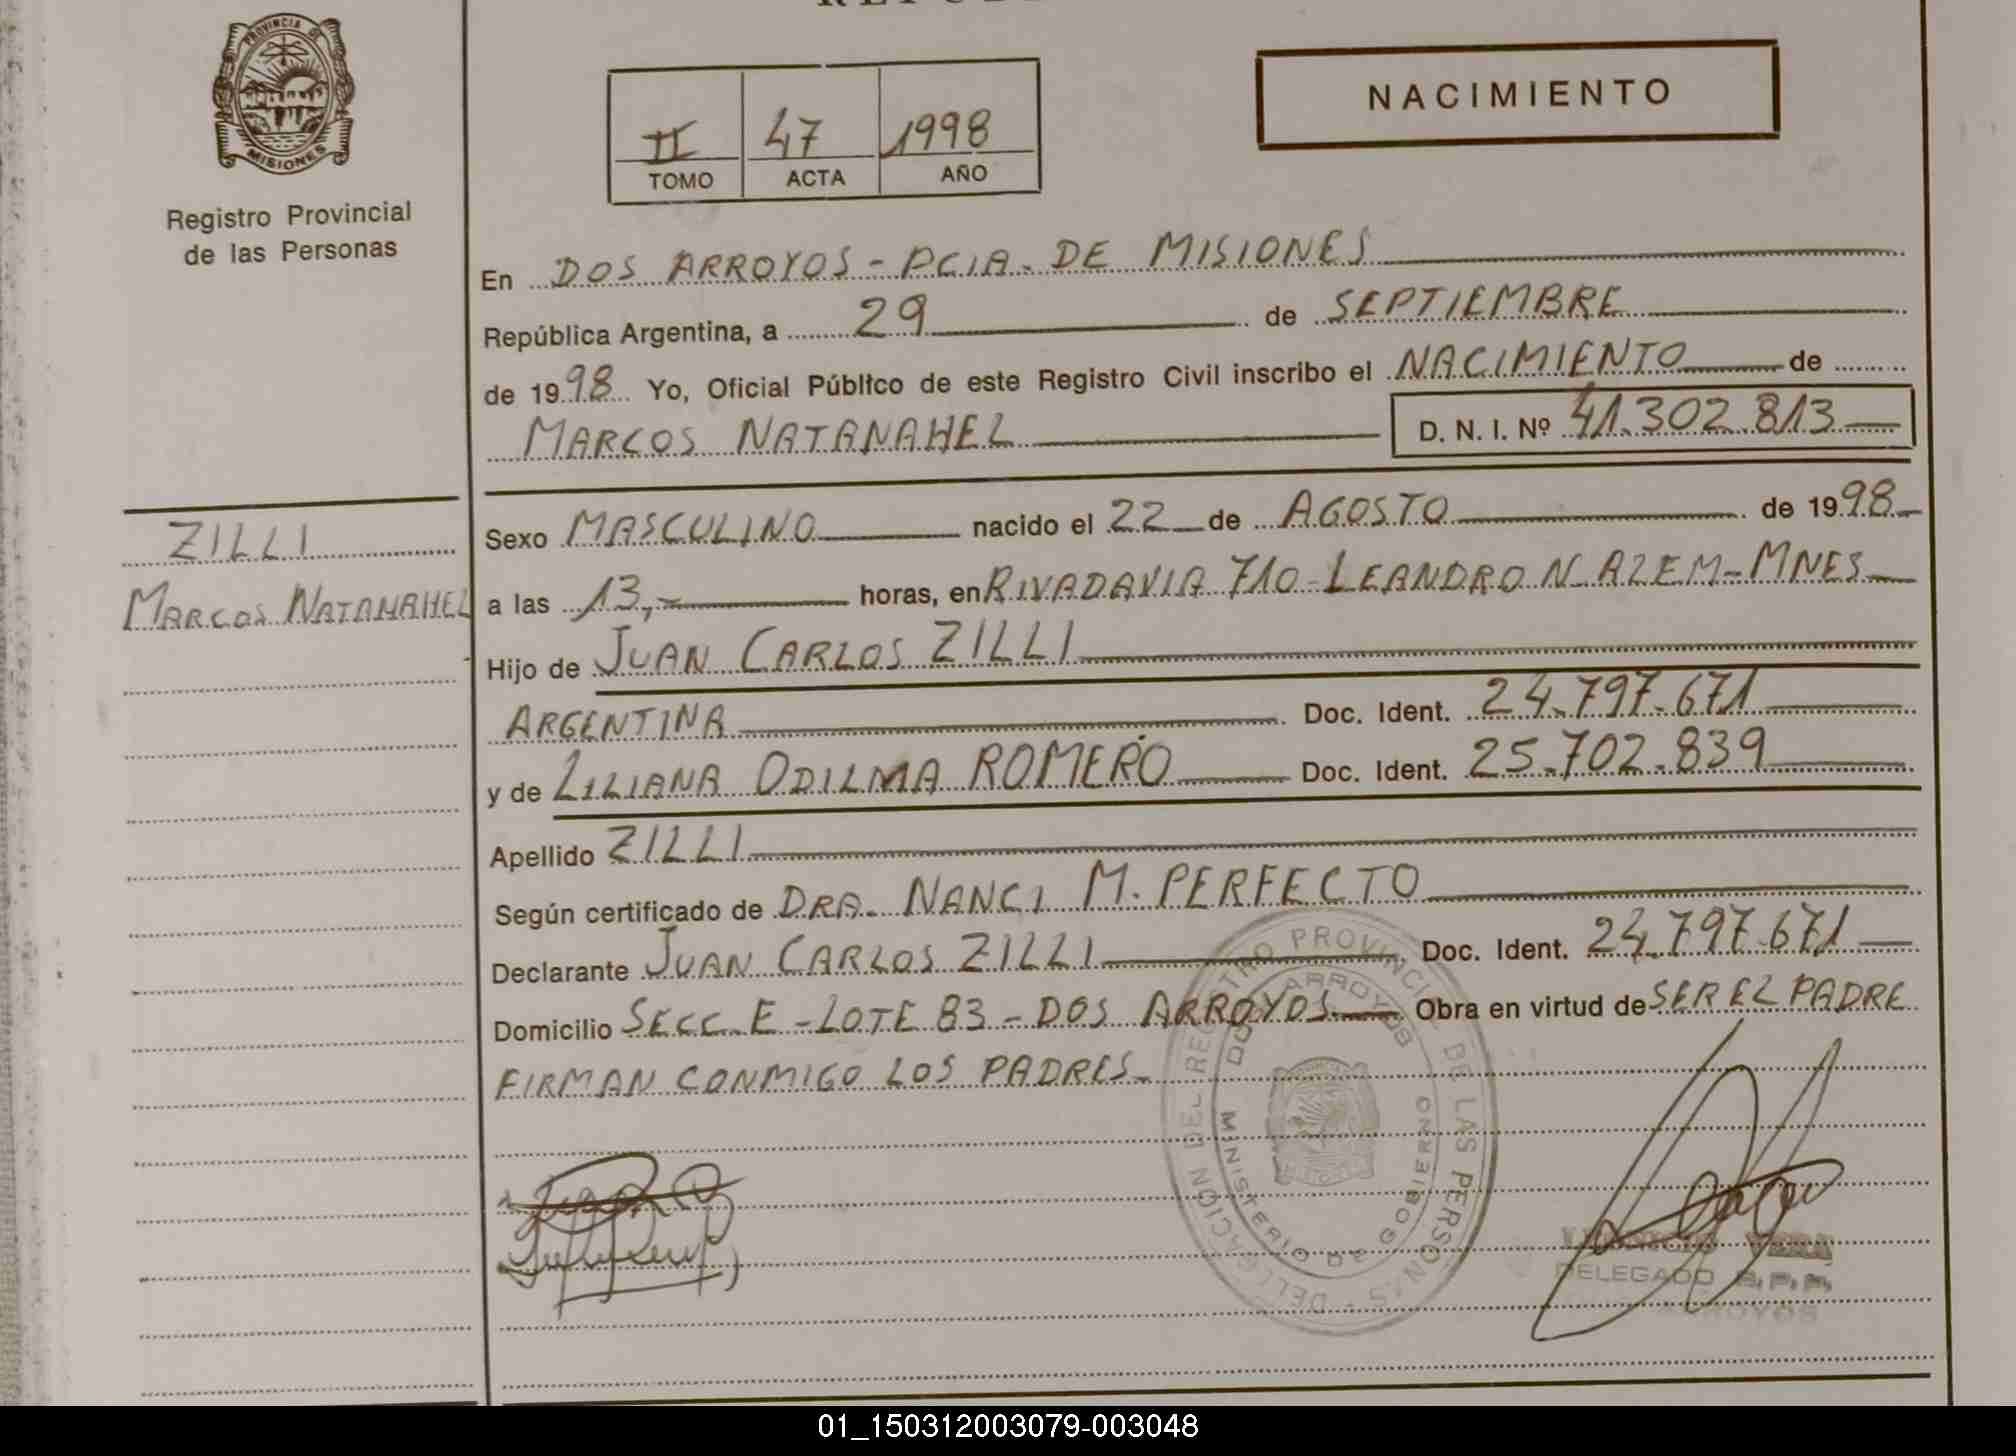 PROVINCIA DE
MISIONES
Registro Provincial
de las Personas
ZILLI
MARCOS NATANAHEL
II 47 1998
TOMO ACTA AÑO
NACIMIENTO
En DOS ARROYOS - PCIA. DE MISIONES
República Argentina, a 29 de SEPTIEMBRE
de 1998 Yo, Oficial Público de este Registro Civil inscribo el NACIMIENTO de
MARCOS NATANAHEL D. N. I. Nº 41.302.813
Sexo MASCULINO nacido el 22 de AGOSTO de 1998
a las 13,- horas, en RIVADAVIA 710 - LEANDRO N. ALEM - MNES
Hijo de JUAN CARLOS ZILLI
ARGENTINA Doc. Ident. 24.797.671
y de LILIANA ODILMA ROMERO Doc. Ident. 25.702.839
Apellido ZILLI
Según certificado de DRA. NANCI M. PERFECTO
Declarante JUAN CARLOS ZILLI Doc. Ident. 24.797.671
Domicilio SECC. E - LOTE 83 - DOS ARROYOS Obra en virtud de SER EL PADRE
FIRMAN CONMIGO LOS PADRES.-
DELEGACION DEL REGISTRO PROVINCIAL DE LAS PERSONAS
DOS ARROYOS
MINISTERIO DE GOBIERNO
VERA
DELEGADO R.P.P.
ARROYOS
01_150312003079-003048